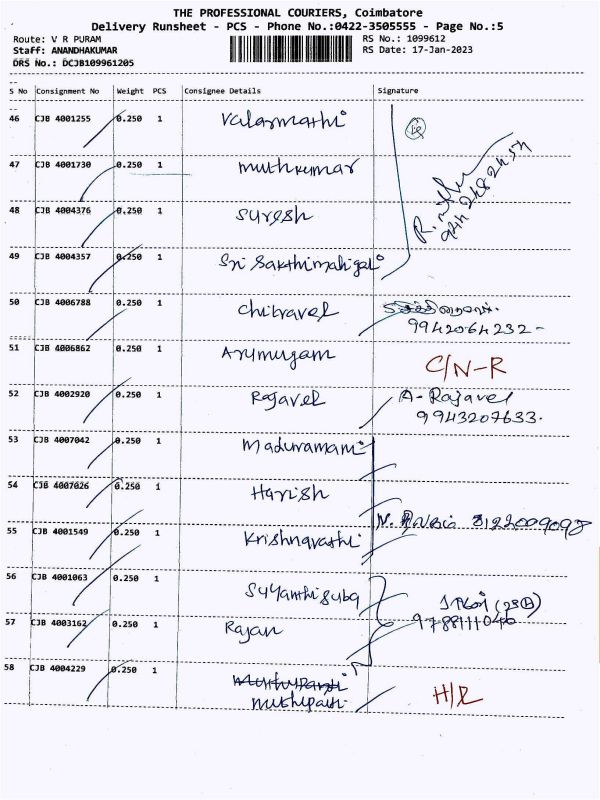 THE PROFESSIONAL COURIERS, Coimbatore
Delivery Runsheet - PCS - Phone No.:0422-3505555 - Page No.:5
Route: V R PURAM RS No.: 1099612
Staff: ANANDHAKUMAR RS Date: 17-Jan-2023
DRS No.: DCJB109961205
S No Consignment No Weight PCS Consignee Details Signature
46 CJB 4001255 0.250 1 Valarmathi
47 CJB 4001730 0.250 1 muthkumar
48 CJB 4004376 0.250 1 Suresh
49 CJB 4004357 0.250 1
50 CJB 4006788 0.250 1 Chitravel
9942064232-
51 CJB 4006862 0.250 1 Arumugam C/N-R
52 CJB 4002920 0.250 1 Rajavel A-Rajavel
9943207633.
53 CJB 4007042 0.250 1 Maduramani
54 CJB 4007026 0.250 1 Harish
8122009098
55 CJB 4001549 0.250 1 Krishnavathi
56 CJB 4001063 0.250 1
57 CJB 4003162 0.250 1 Rajan
58 CJB 4004229 0.250 1